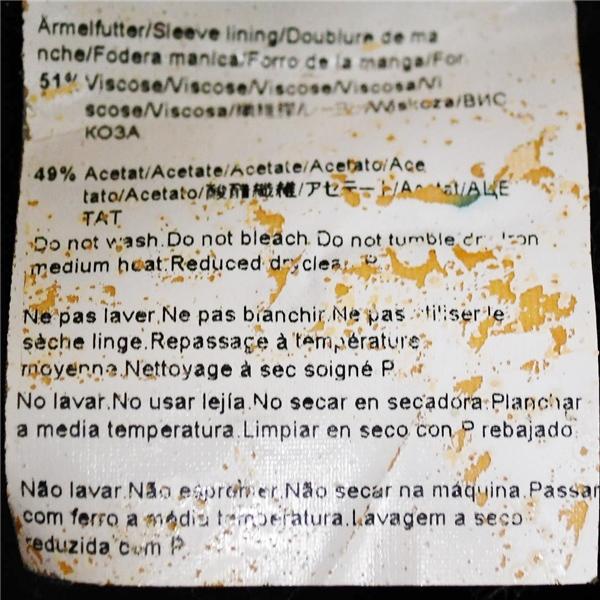 Ärmelfutter/Sleeve lining/Doublure de ma
nche/Fodera manica/Forro de la manga/For
51% Viscose/Viscose/Viscose/Viscosa/Vi
scose/Viscosa/Wiskoza/ВИС
КОЗА
49% Acetat/Acetate/Acetate/Acetato/Ace
tato/Acetato/酸酯纖維/アセテート/АЦЕ
ТАТ
Do not wash.Do not bleach.Do not tumble dry.Iron
medium heat.Reduced dryclean P
Ne pas laver.Ne pas blanchir.Ne pas utiliser le
sèche linge.Repassage à température
moyenne.Nettoyage à sec soigné P
No lavar.No usar lejía.No secar en secadora.Planchar
a media temperatura.Limpiar en seco con P rebajado
Não lavar.Não espremer.Não secar na máquina.Passar
com ferro a média temperatura.Lavagem a seco
reduzida com P